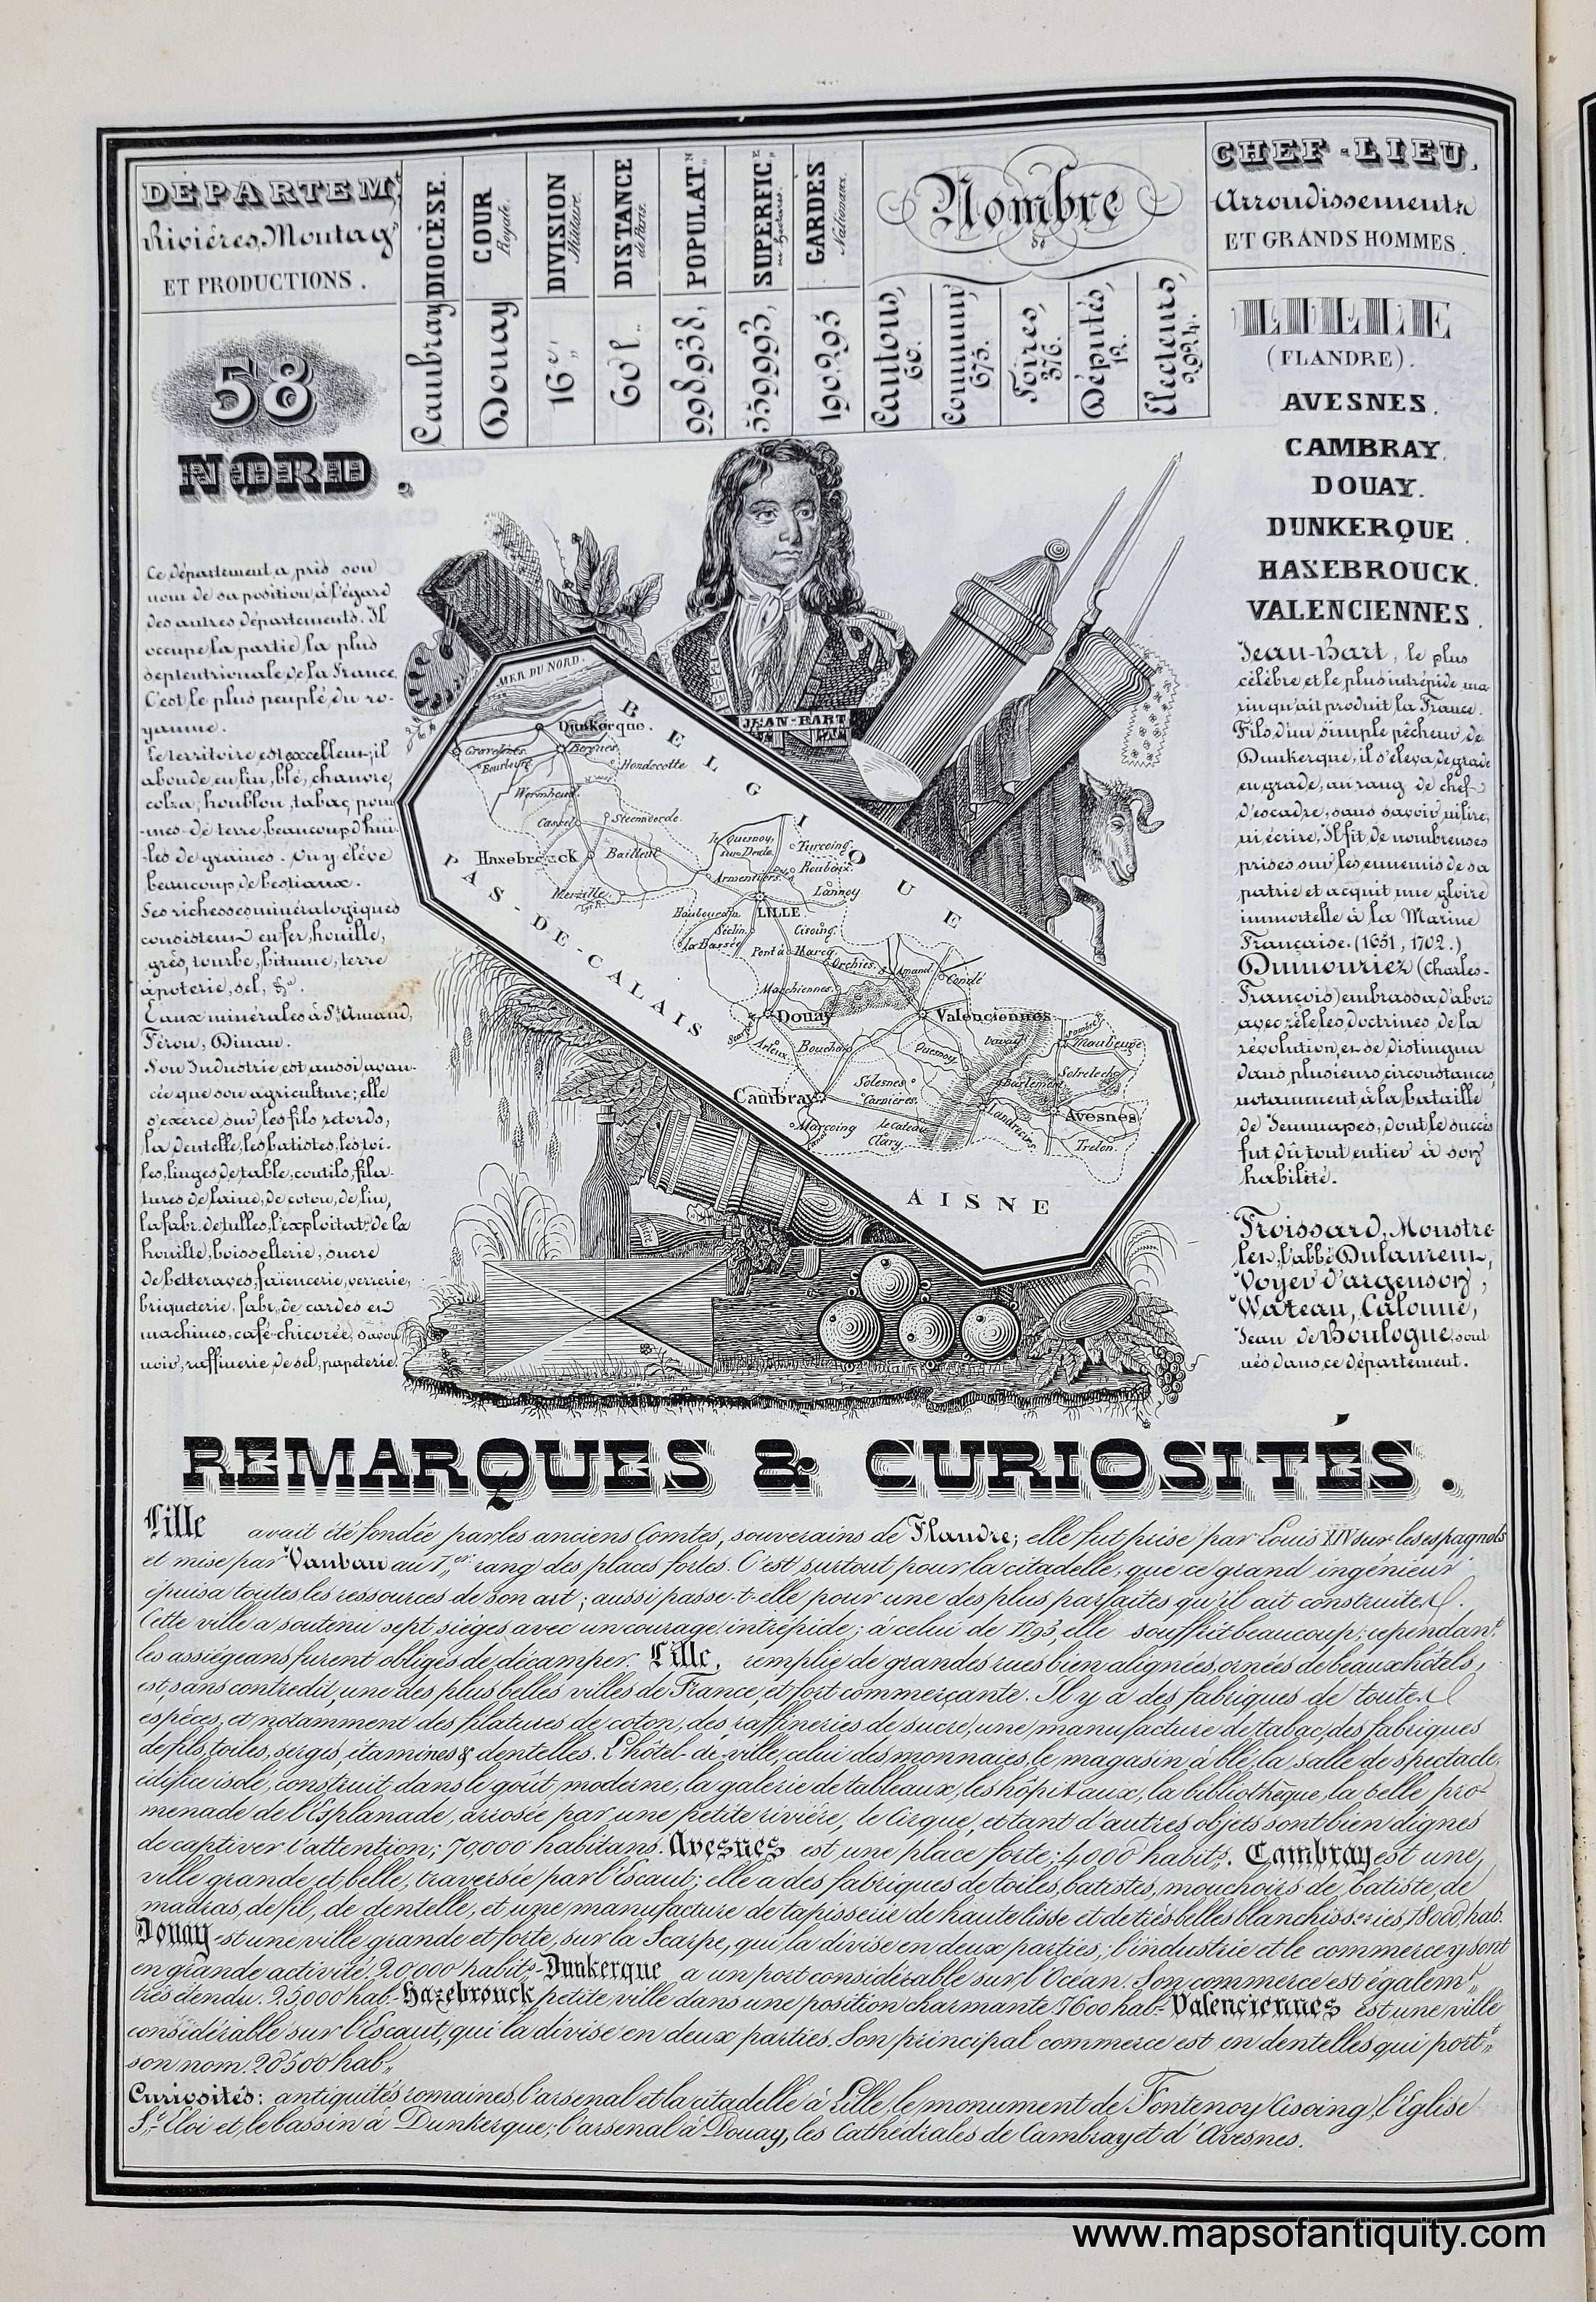 DÉPARTEM.t
Rivières, Montag.
ET PRODUCTIONS.
DIOCÈSE.
Cambray
COUR
Royale.
Douay
DIVISION
Militaire.
16e
DISTANCE
de Paris.
60 l.
POPULAT.N
998,938,
SUPERFIC.E
en hectares.
559,993,
GARDES
Nationaux.
190,295
Nombre
de
Cantons,
60.
Commun,
675.
Foires,
376.
Députés,
12.
Électeurs,
2,924.
CHEF-LIEU,
Arrondissements
ET GRANDS HOMMES.
58
NORD.
LILLE
(FLANDRE).
AVESNES.
CAMBRAY.
DOUAY.
DUNKERQUE.
HAZEBROUCK.
VALENCIENNES.
Ce département a pris son
nom de sa position à l'égard
des autres départements. Il
occupe la partie la plus
septentrionale de la France.
C'est le plus peuplé du ro-
yaume.
Le territoire est excellent; il
abonde en lin, blé, chanvre,
colza, houblon, tabac, pom
-mes-de terre, beaucoup d'hui-
-les de graines. On y élève
beaucoup de bestiaux.
Ses richesses minéralogiques
consistent en fer, houille,
grès, tourbe, bitume, terre
à poterie, sel, &a.
Eaux minérales à St. Amand,
Féron, Dinan.
Son Industrie est aussi avan-
cée que son agriculture; elle
s'exerce sur les fils retords,
la dentelle, les batistes, les toi-
les, linges de table, coutils, fila-
tures de laine, de coton, de lin,
la fabr. de tulles, l'exploitat. de la
houille, boissellerie, sucre
de betteraves, faïencerie, verrerie,
briqueterie, fabr. de cardes en
machines, café-chicorée, savon
noir, raffinerie de sel, papeterie.
Jean-Bart, le plus
célèbre et le plus intrépide ma-
rin qu'ait produit la France.
Fils d'un simple pêcheur de
Dunkerque, il s'éleva de grade
en grade, au rang de chef
d'escadre, sans savoir ni lire,
ni écrire. Il fit de nombreuses
prises sur les ennemis de sa
patrie et acquit une gloire
immortelle à la Marine
Française. (1651, 1702.)
Dumouriez (Charles-
François) embrassa d'abord
avec zèle les doctrines de la
révolution, et se distingua
dans plusieurs circonstances,
notamment à la bataille
de Jemmapes, dont le succès
fut dû tout entier à son
habileté.
Froissard, Monstre-
let, l'abbé Dulaurens,
Voyer d'argenson,
Wateau, Calonne,
Jean de Boulogne, sont
nés dans ce département.
JEAN-BART
MER DU NORD.
BELGIQUE
PAS-DE-CALAIS
AISNE
Dunkerque.
Gravelines.
Bourbourg
Bergues
Hondscotte
Wormhoud.
Cassel
Steenvorde.
Hazebrouck
Bailleul
Merville
Lys R.
le Quesnoy,
sur-Deule.
Turcoing
Roubaix.
Armentières.
Lannoy
LILLE
Haubourdin
Séclin.
la Bassée
Cisoing.
Pont à Marcq
Orchies.
St. Amand
Condé
Marchiennes.
Douay
Scarpe
Arleux
Bouchain
Valenciennes
Bavay
Sambre
Maubeuge
Quesnoy
Solesnes
Carnières.
Berlemont
Solreleche
Cambray
Marcoing
le Cateau
Clary.
Landrecies
Avesnes
Trelon.
REMARQUES & CURIOSITÉS.
Lille avait été fondée par les anciens Comtes, souverains de Flandre; elle fut prise par Louis XIV sur les espagnols
et mise par Vauban au 1er rang des places fortes. C'est surtout pour la citadelle, que ce grand ingénieur
épuisa toutes les ressources de son art; aussi passe-t-elle pour une des plus parfaites qu'il ait construites.
Cette ville a soutenu sept sièges avec un courage intrépide; a celui de 1793, elle souffrit beaucoup; cependant
les assiégeans furent obligés de décamper. Lille, remplie de grandes rues bien alignées, ornées de beaux hôtels,
est, sans contredit, une des plus belles villes de France, et fort commerçante. Il y a des fabriques de toutes
espèces, et notamment des filatures de coton, des raffineries de sucre, une manufacture de tabac, des fabriques
de fils, toiles, serges, étamines & dentelles. L'hôtel-de-ville, celui des monnaies, le magasin à blé, la salle de spectacle,
édifice isolé, construit dans le goût moderne, la galerie de tableaux, les hôpitaux, la bibliothèque, la belle pro-
menade de l'Esplanade, arrosée par une petite rivière, le Cirque, et tant d'autres objets sont bien dignes
de captiver l'attention; 70,000 habitans. Avesnes est une place forte; 4000 habits. Cambray est une
ville grande et belle, traversée par l'Escaut; elle a des fabriques de toiles, batistes, mouchoirs de batiste, de
madras, de fil, de dentelle, et une manufacture de tapisserie de haute lisse et de très belles blanchisseries, 18000 hab.
Douay est une ville grande et forte, sur la Scarpe, qui la divise en deux parties; l'industrie et le commerce y sont
en grande activité. 20,000 habits. Dunkerque a un port considérable sur l'Océan. Son commerce est égalemt
très étendu. 25,000 hab. Hazebrouck petite ville dans une position charmante. 7600 hab. Valenciennes est une ville
considérable sur l'Escaut, qui la divise en deux parties. Son principal commerce est en dentelles qui portt
son nom. 20500 hab.
Curiosités: antiquités romaines, l'arsenal et la citadelle à Lille, le monument de Fontenoy Cisoing, l'Eglise
St. Eloi et le bassin à Dunkerque; l'arsenal à Douay, les Cathédrales de Cambray et d'Avesnes.
www.mapsofantiquity.com